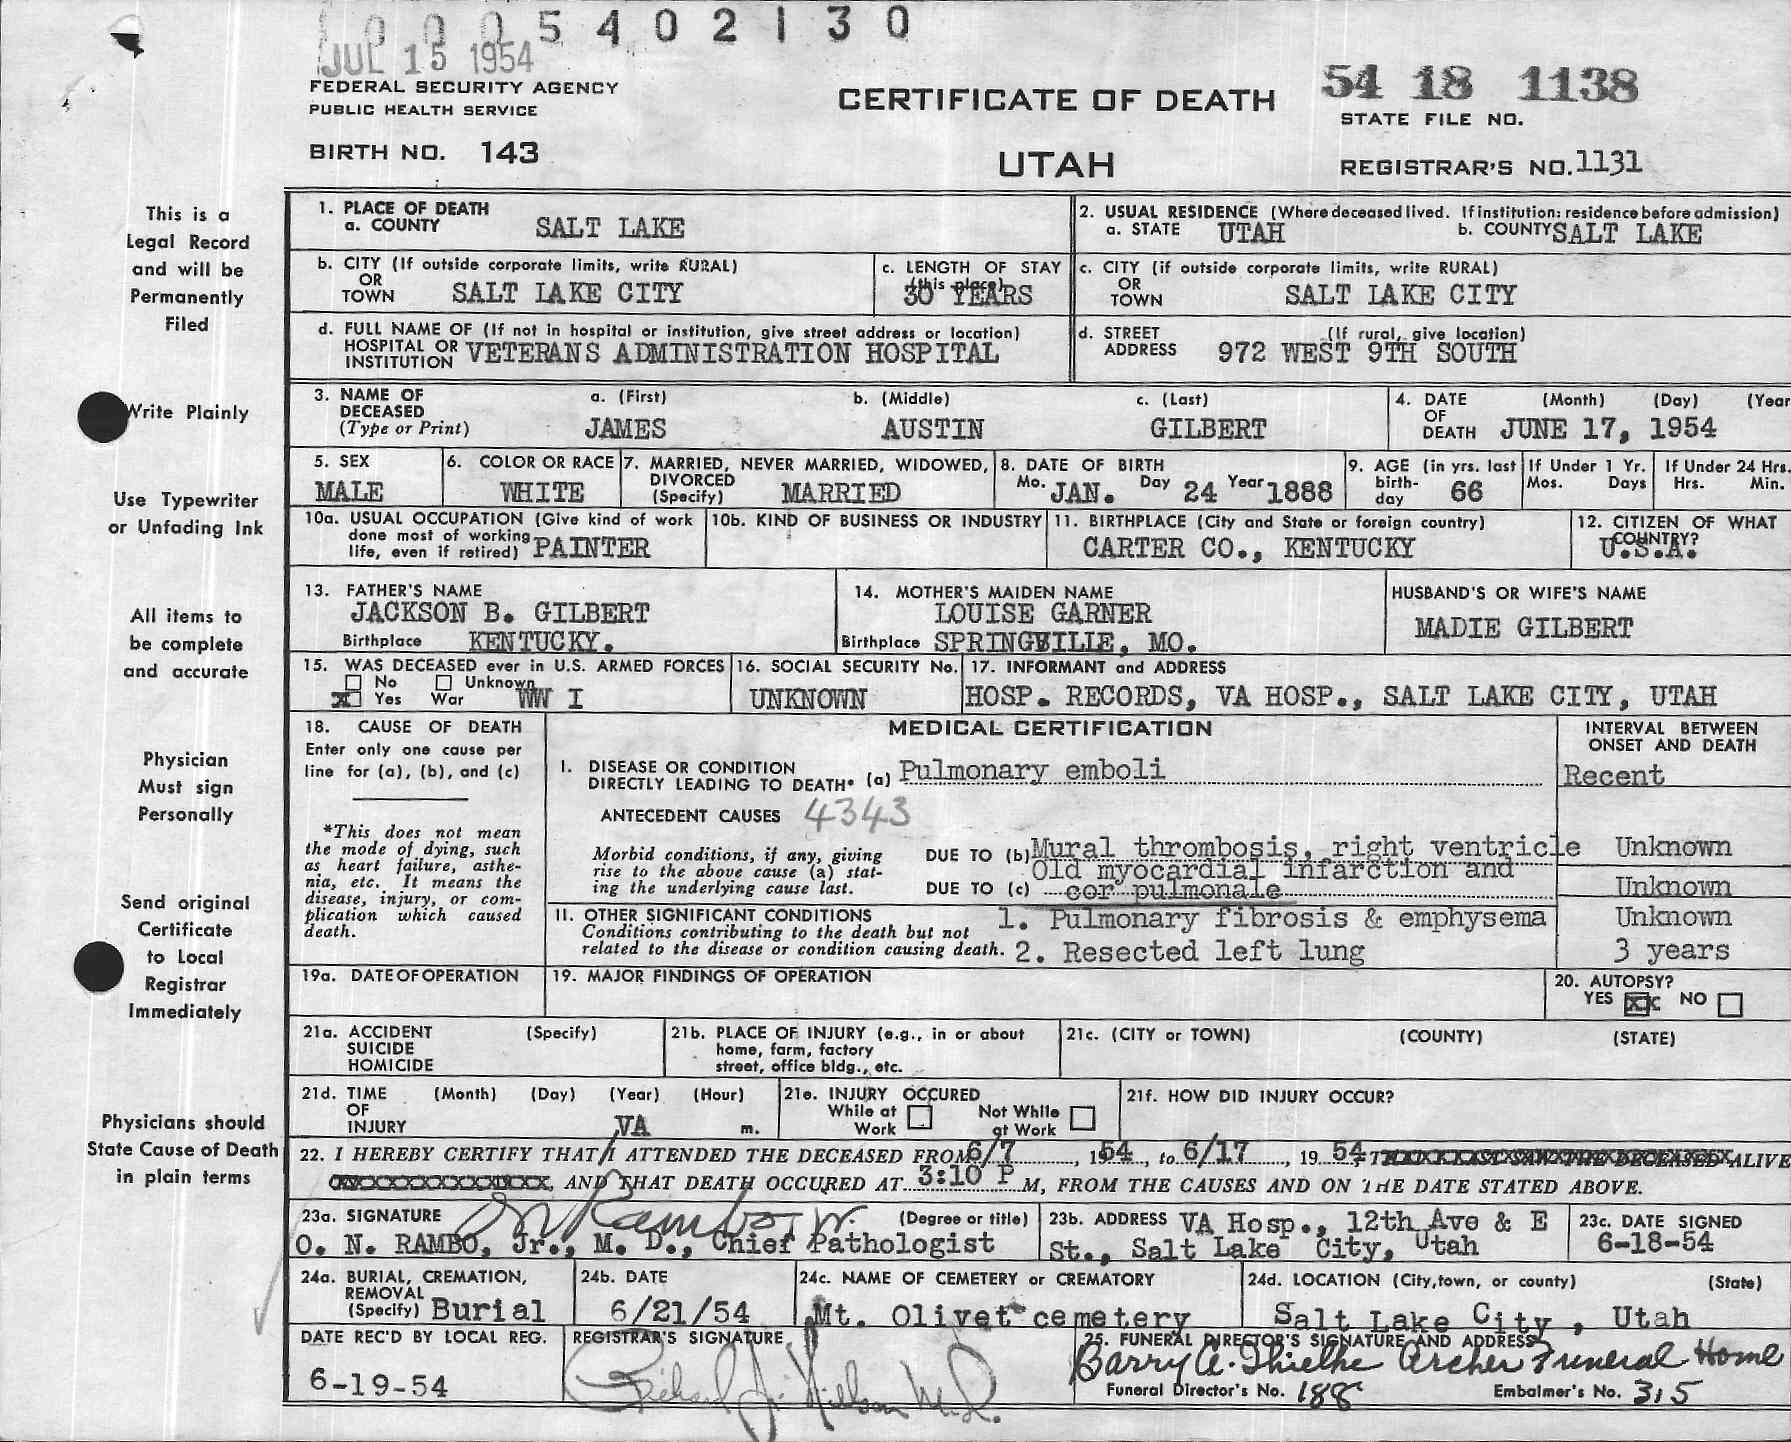 0 0 0 5 4 0 2 1 3 0
JUL 15 1954
FEDERAL SECURITY AGENCY
PUBLIC HEALTH SERVICE
BIRTH NO. 143
CERTIFICATE OF DEATH
UTAH
54 18 1138
STATE FILE NO.
REGISTRAR'S NO. 1131
This is a
Legal Record
and will be
Permanently
Filed
Write Plainly
Use Typewriter
or Unfading Ink
All items to
be complete
and accurate
Physician
Must sign
Personally
Send original
Certificate
to Local
Registrar
Immediately
Physicians should
State Cause of Death
in plain terms
1. PLACE OF DEATH
a. COUNTY SALT LAKE
2. USUAL RESIDENCE (Where deceased lived. If institution: residence before admission)
a. STATE UTAH b. COUNTY SALT LAKE
b. CITY (If outside corporate limits, write RURAL)
OR
TOWN SALT LAKE CITY
c. LENGTH OF STAY
(this place)
30 YEARS
c. CITY (if outside corporate limits, write RURAL)
OR
TOWN SALT LAKE CITY
d. FULL NAME OF (If not in hospital or institution, give street address or location)
HOSPITAL OR
INSTITUTION VETERANS ADMINISTRATION HOSPITAL
d. STREET (If rural, give location)
ADDRESS 972 WEST 9TH SOUTH
3. NAME OF a. (First) b. (Middle) c. (Last)
DECEASED
(Type or Print) JAMES AUSTIN GILBERT
4. DATE (Month) (Day) (Year
OF
DEATH JUNE 17, 1954
5. SEX
MALE
6. COLOR OR RACE
WHITE
7. MARRIED, NEVER MARRIED, WIDOWED,
DIVORCED
(Specify) MARRIED
8. DATE OF BIRTH
Mo. JAN. Day 24 Year 1888
9. AGE (in yrs. last
birth-
day 66
If Under 1 Yr.
Mos. Days
If Under 24 Hrs.
Hrs. Min.
10a. USUAL OCCUPATION (Give kind of work
done most of working
life, even if retired) PAINTER
10b. KIND OF BUSINESS OR INDUSTRY
11. BIRTHPLACE (City and State or foreign country)
CARTER CO., KENTUCKY
12. CITIZEN OF WHAT
COUNTRY?
U.S.A.
13. FATHER'S NAME
JACKSON B. GILBERT
Birthplace KENTUCKY.
14. MOTHER'S MAIDEN NAME
LOUISE GARNER
Birthplace SPRINGVILLE, MO.
HUSBAND'S OR WIFE'S NAME
MADIE GILBERT
15. WAS DECEASED ever in U.S. ARMED FORCES
No Unknown
X Yes War WW I
16. SOCIAL SECURITY No.
UNKNOWN
17. INFORMANT and ADDRESS
HOSP. RECORDS, VA HOSP., SALT LAKE CITY, UTAH
18. CAUSE OF DEATH
Enter only one cause per
line for (a), (b), and (c)
*This does not mean
the mode of dying, such
as heart failure, asthe-
nia, etc. It means the
disease, injury, or com-
plication which caused
death.
MEDICAL CERTIFICATION
INTERVAL BETWEEN
ONSET AND DEATH
I. DISEASE OR CONDITION
DIRECTLY LEADING TO DEATH* (a) Pulmonary emboli
Recent
ANTECEDENT CAUSES 4343
Morbid conditions, if any, giving
rise to the above cause (a) stat-
ing the underlying cause last.
DUE TO (b) Mural thrombosis, right ventricle Unknown
Old myocardial infarction and
DUE TO (c) cor pulmonale Unknown
II. OTHER SIGNIFICANT CONDITIONS
Conditions contributing to the death but not
related to the disease or condition causing death.
1. Pulmonary fibrosis & emphysema Unknown
2. Resected left lung 3 years
19a. DATE OF OPERATION
19. MAJOR FINDINGS OF OPERATION
20. AUTOPSY?
YES XX NO
21a. ACCIDENT (Specify)
SUICIDE
HOMICIDE
21b. PLACE OF INJURY (e.g., in or about
home, farm, factory
street, office bldg., etc.
21c. (CITY or TOWN) (COUNTY) (STATE)
21d. TIME (Month) (Day) (Year) (Hour)
OF
INJURY m.
VA
21e. INJURY OCCURED
While at
Work
Not While
at Work
21f. HOW DID INJURY OCCUR?
22. I HEREBY CERTIFY THAT/I ATTENDED THE DECEASED FROM 6/7, 1954, to 6/17, 19 54 ALIVE
AND THAT DEATH OCCURED AT 3:10 P M, FROM THE CAUSES AND ON THE DATE STATED ABOVE.
23a. SIGNATURE ON Rambo Jr. (Degree or title)
O. N. RAMBO, Jr., M. D., Chief Pathologist
23b. ADDRESS VA Hosp., 12th Ave & E
St., Salt Lake City, Utah
23c. DATE SIGNED
6-18-54
24a. BURIAL, CREMATION,
REMOVAL
(Specify) Burial
24b. DATE
6/21/54
24c. NAME OF CEMETERY or CREMATORY
Mt. Olivet cemetery
24d. LOCATION (City, town, or county) (State)
Salt Lake City, Utah
DATE REC'D BY LOCAL REG.
6-19-54
REGISTRAR'S SIGNATURE
Richard J. Nelson M.D.
25. FUNERAL DIRECTOR'S SIGNATURE AND ADDRESS
Barry A. Thielke Archer Funeral Home
Funeral Director's No. 188 Embalmer's No. 315